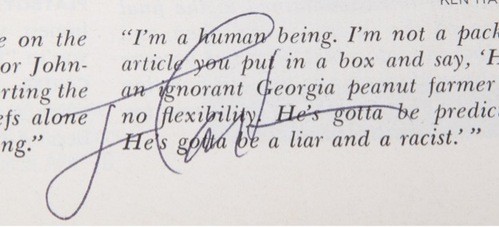 e on the
or John-
rting the
efs alone
ng.”
“I'm a human being. I'm not a pack
article you put in a box and say, ‘H
an ignorant Georgia peanut farmer
no flexibility. He's gotta be predic
He's gotta be a liar and a racist.’ ”